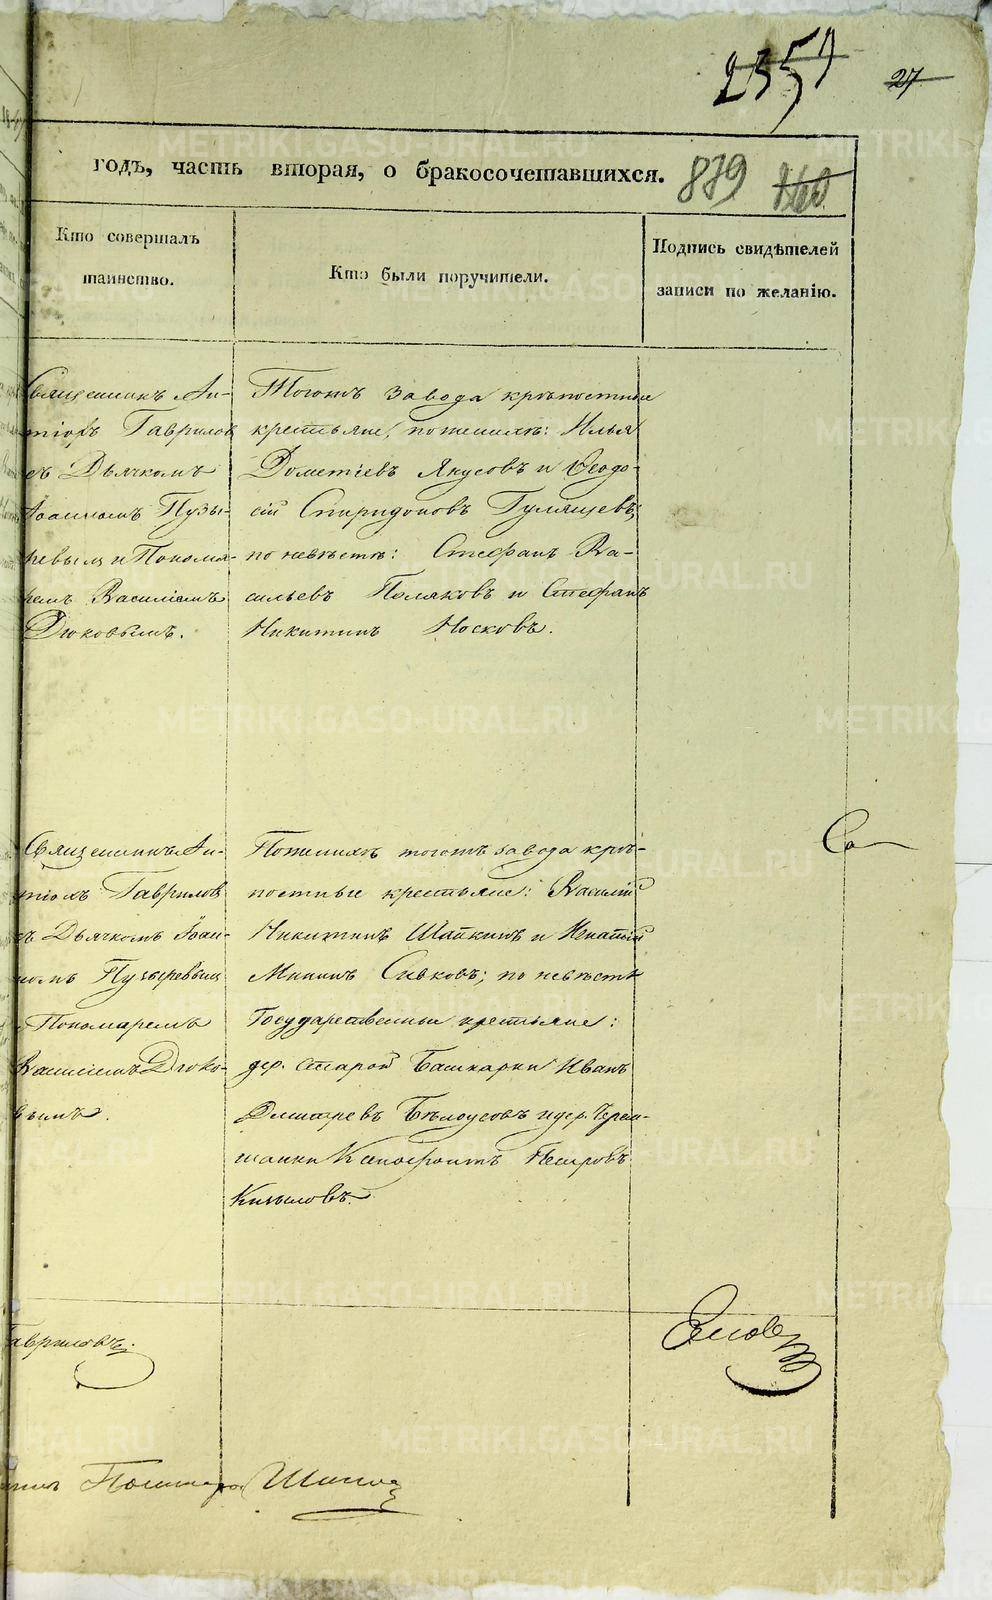 2359
27
годъ, часть вторая, о бракосочетавшихся.
879
Кто совершалъ
таинство.
Кто были поручители.
Подпись свидѣтелей
записи по желанію.
Священникъ Ан-
Гаврилов
съ Дьячкомъ
Іоанномъ Пузы-
ревымъ и Понома-
ремъ Василіемъ
Дюковымъ.
Тогожъ завода крѣпостные
крестьяне, по женихѣ: Илья
Дометіевъ Якусовъ и Ѳеодо-
сій Спиридоновъ Гулящевъ;
по невѣстѣ: Стефанъ Ва-
сильевъ Поляковъ и Стефанъ
Никитинъ Носковъ.
Священникъ Ан-
Гаврилов
съ Дьячкомъ Іоан-
номъ Пузыревымъ
Пономаремъ
Василіемъ Дюко-
вымъ.
По женихѣ тогожъ завода крѣ-
постные крестьяне: Василій
Никитинъ Шапкинъ и Игнатій
Мининъ Сивковъ; по невѣстѣ
Государственные крестьяне:
дер. Старой Башкарки Иванъ
Дмитревъ Бѣлоусовъ и дер. Черем-
шанки Ксенофонтъ Петровъ
Кизиловъ.
Гавриловъ.
Пономарь